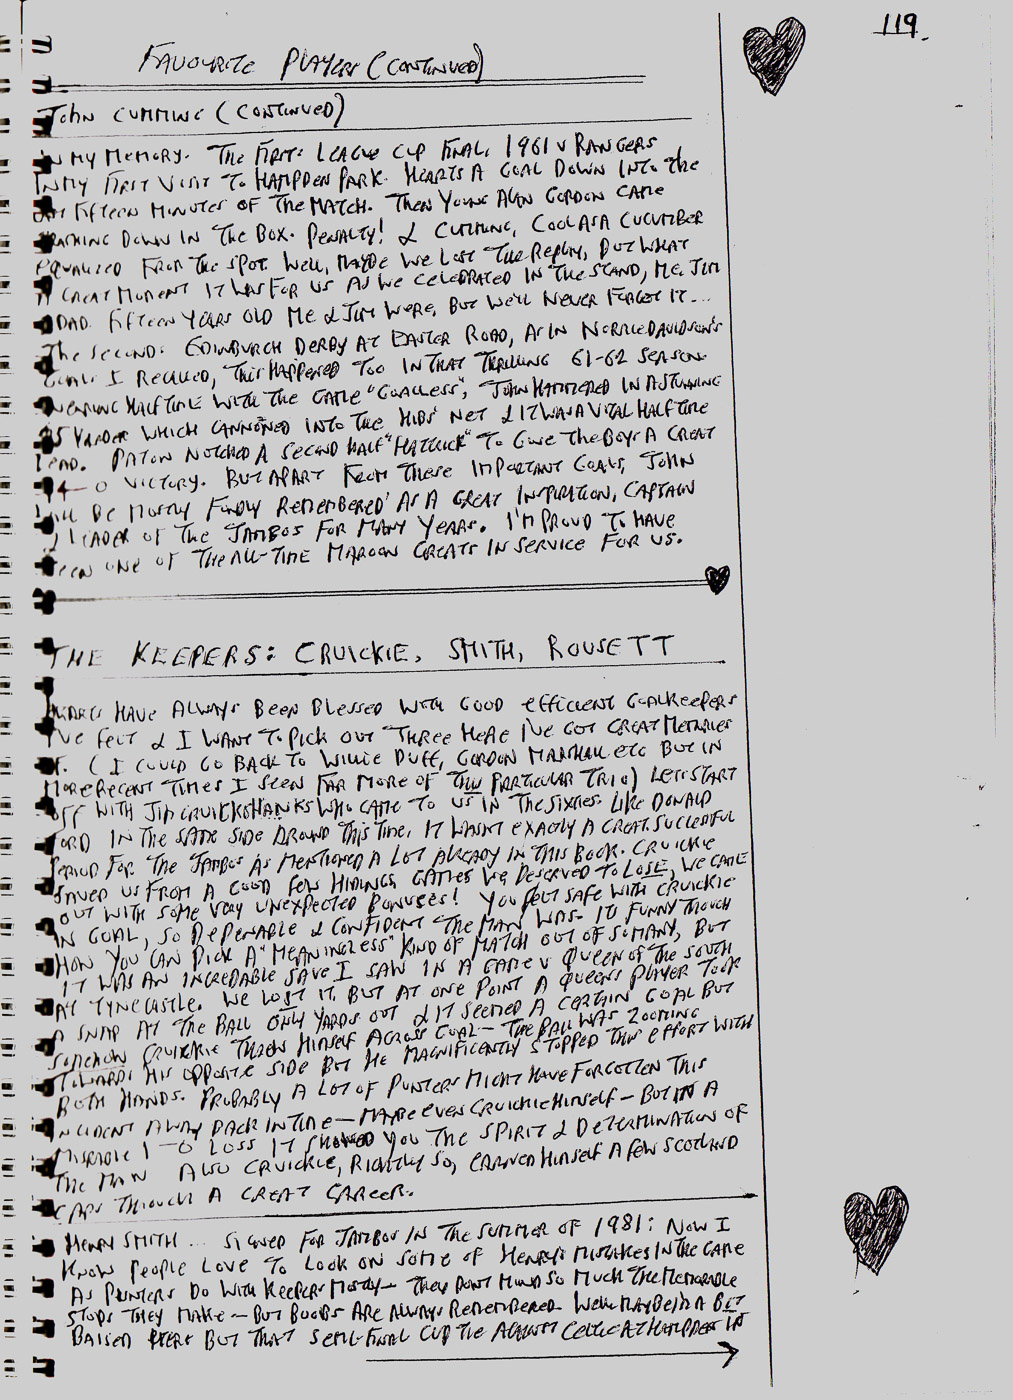 119.
FAVOURITE PLAYERS (CONTINUED)
JOHN CUMMING (CONTINUED)
IN MY MEMORY. THE FIRST: LEAGUE CUP FINAL, 1961 V RANGERS
IN MY FIRST VISIT TO HAMPDEN PARK. HEARTS A GOAL DOWN INTO THE
FIFTEEN MINUTES OF THE MATCH. THEN YOUNG ALAN GORDON CAME
CRASHING DOWN IN THE BOX. PENALTY! & CUMMING, COOL AS A CUCUMBER
EQUALISED FROM THE SPOT. WELL, MAYBE WE LOST THE REPLAY, BUT WHAT
A GREAT MOMENT IT WAS FOR US AS WE CELEBRATED IN THE STAND, ME, JIM
& DAD. FIFTEEN YEARS OLD ME & JIM WERE, BUT WE'LL NEVER FORGET IT...
THE SECOND: EDINBURGH DERBY AT EASTER ROAD, AS IN NORRIE DAVIDSON'S
GOALS I RECALLED, THIS HAPPENED TOO IN THAT THRILLING 61-62 SEASON.
NEARING HALF TIME WITH THE GAME "GOALLESS", JOHN HAMMERED IN A STUNNING
25 YARDER WHICH CANNONED INTO THE HIBS' NET & IT WAS A VITAL HALF TIME
LEAD. PATON NOTCHED A SECOND HALF "HATTRICK" TO GIVE THE BOYS A GREAT
4-0 VICTORY. BUT APART FROM THESE IMPORTANT GOALS, JOHN
WILL BE MOSTLY FONDLY REMEMBERED AS A GREAT INSPIRATION, CAPTAIN
& LEADER OF THE JAMBOS FOR MANY YEARS. I'M PROUD TO HAVE
SEEN ONE OF THE ALL-TIME MAROON GREATS IN SERVICE FOR US.
THE KEEPERS: CRUICKIE, SMITH, ROUSETT
HEARTS HAVE ALWAYS BEEN BLESSED WITH GOOD EFFICIENT GOALKEEPERS
I'VE FELT & I WANT TO PICK OUT THREE HERE I'VE GOT GREAT MEMORIES
OF. (I COULD GO BACK TO WILLIE DUFF, GORDON MARSHALL ETC BUT IN
MORE RECENT TIMES I SEEN FAR MORE OF THIS PARTICULAR TRIO) LETS START
OFF WITH JIM CRUICKSHANKS WHO CAME TO US IN THE SIXTIES. LIKE DONALD
FORD IN THE SAME SIDE AROUND THIS TIME, IT WASNT EXACTLY A GREAT SUCCESSFUL
PERIOD FOR THE JAMBOS AS MENTIONED A LOT ALREADY IN THIS BOOK. CRUICKIE
SAVED US FROM A GOOD FEW HIDINGS, GAMES WE DESERVED TO LOSE, WE CAME
OUT WITH SOME VERY UNEXPECTED BONUSES! YOU FELT SAFE WITH CRUICKIE
IN GOAL, SO DEPENABLE & CONFIDENT THE MAN WAS. IT'S FUNNY THOUGH
HOW YOU CAN PICK A "MEANINGLESS" KIND OF MATCH OUT OF SO MANY, BUT
IT WAS AN INCREDABLE SAVE I SAW IN A GAME V QUEEN OF THE SOUTH
AT TYNECASTLE. WE LOST IT, BUT AT ONE POINT A QUEENS PLAYER TOOK
A SNAP AT THE BALL ONLY YARDS OUT & IT SEEMED A CERTAIN GOAL BUT
SOMEHOW CRUICKIE THREW HIMSELF ACROSS GOAL - THE BALL WAS ZOOMING
TOWARDS HIS OPPOSITE SIDE BUT HE MAGNIFICENTLY STOPPED THIS EFFORT WITH
BOTH HANDS. PROBABLY A LOT OF PUNTERS MIGHT HAVE FORGOTTEN THIS
INCIDENT AWAY BACK IN TIME - MAYBE EVEN CRUICKIE HIMSELF - BUT IN A
MISERABLE 1-0 LOSS IT SHOWED YOU THE SPIRIT & DETERMINATION OF
THE MAN. ALSO CRUICKIE, RIGHTLY SO, EARNED HIMSELF A FEW SCOTLAND
CAPS THROUGH A GREAT CAREER.
HENRY SMITH... SIGNED FOR JAMBOS IN THE SUMMER OF 1981: NOW I
KNOW PEOPLE LOVE TO LOOK ON SOME OF HENRY'S MISTAKES IN THE GAME
AS PUNTERS DO WITH KEEPERS MOSTLY - THEY DONT MIND SO MUCH THE MEMORABLE
STOPS THEY MAKE - BUT BOOBS ARE ALWAYS REMEMBERED. WELL MAYBE I'M A BIT
BAISED HERE BUT THAT SEMI-FINAL CUP TIE AGAINST CELTIC AT HAMPDEN IN